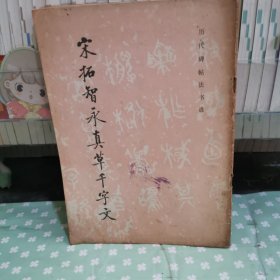 历代碑帖法书选
宋拓智永真草千字文